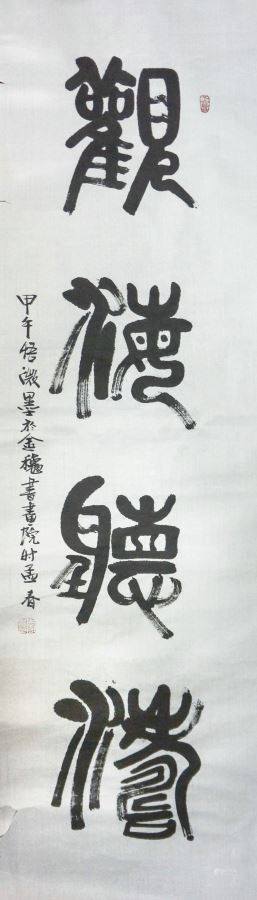 觀海聽濤
甲午悟激墨於金穗書畫院時孟春